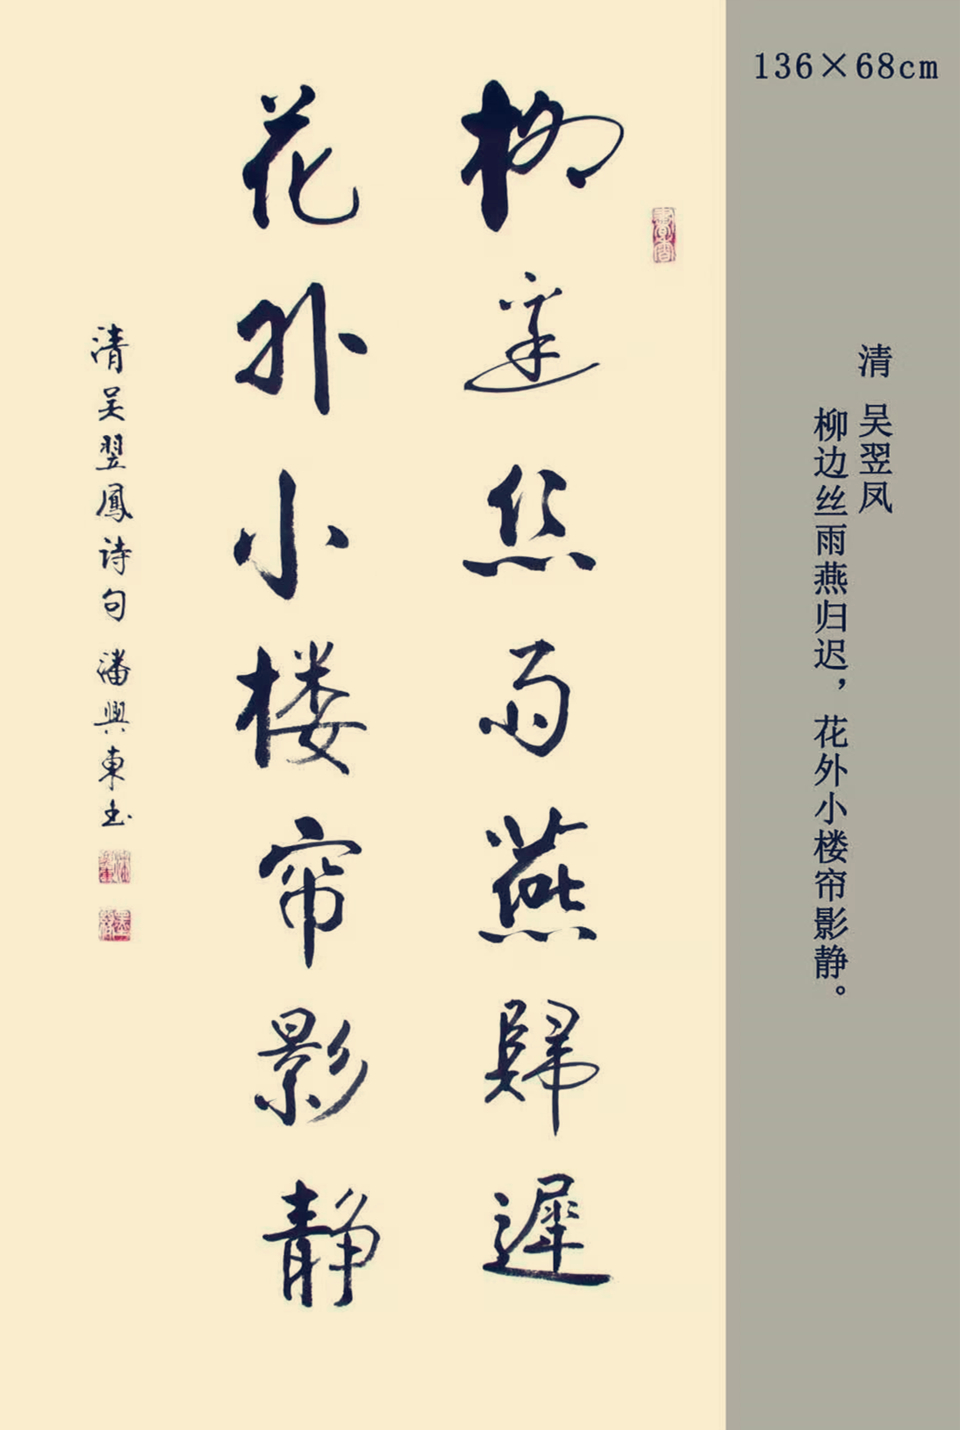 136×68cm
清 吴翌凤
柳边丝雨燕归迟，花外小楼帘影静。
柳邊丝雨燕歸遲
花外小楼帘影静
清吴翌鳳诗句 潘興東书